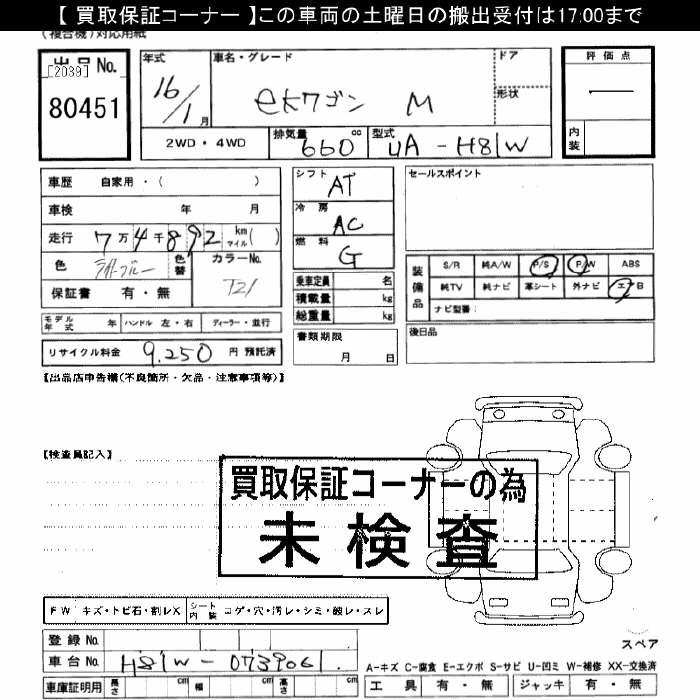 【 買取保証コーナー 】この車両の土曜日の搬出受付は17:00まで
(複合機)対応用紙
出品 No.
[2039]
80451
年式
16/1月
車名・グレード
ekワゴン M
ドア
形状
評価点
内装
2WD・4WD
排気量
660 cc
型式
UA-H81W
車歴 自家用・( )
車検 年 月
走行 7万4千892 km マイル( )
色 ライトブルー 色替
カラーNo.
T21
保証書 有・無
シフト
AT
冷房
AC
燃料
G
乗車定員 名
積載量 kg
総重量 kg
セールスポイント
装備品
S/R 純A/W P/S P/W ABS
純TV 純ナビ 革シート 外ナビ エアB
ナビ型番：
モデル年式 年 ハンドル 左・右 ディーラー・並行
書類期限
月 日
後日品
リサイクル料金 9,250 円 預託済
【出品店申告欄(不良箇所・欠品・注意事項等)】
【検査員記入】
買取保証コーナーの為
未検査
FW キズ・トビ石・割レX シート内装 コゲ・穴・汚レ・シミ・破レ・スレ
登録 No.
車台 No. H81W-0739061
スペア
A-キズ C-腐食 E-エクボ S-サビ U-凹ミ W-補修 XX-交換済
車庫証明用 長さ cm 幅 cm 高さ cm
工具 有・無 ジャッキ 有・無